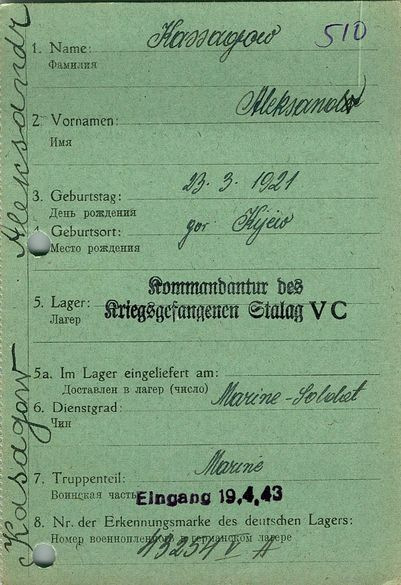 510
1. Name: Kassagow
Фамилия
2. Vornamen: Aleksandr
Имя
3. Geburtstag: 23. 3. 1921
День рождения
4. Geburtsort: gor Kijew
Место рождения
5. Lager: Kommandantur des
Kriegsgefangenen Stalag V C
Лагерь
5a. Im Lager eingeliefert am:
Доставлен в лагерь (число)
6. Dienstgrad: Marine-Soldat
Чин
7. Truppenteil: Marine
Воинская часть
Eingang 19.4.43
8. Nr. der Erkennungsmarke des deutschen Lagers:
Номер военнопленного в германском лагере
13254 V A
Kasagow Aleksandr